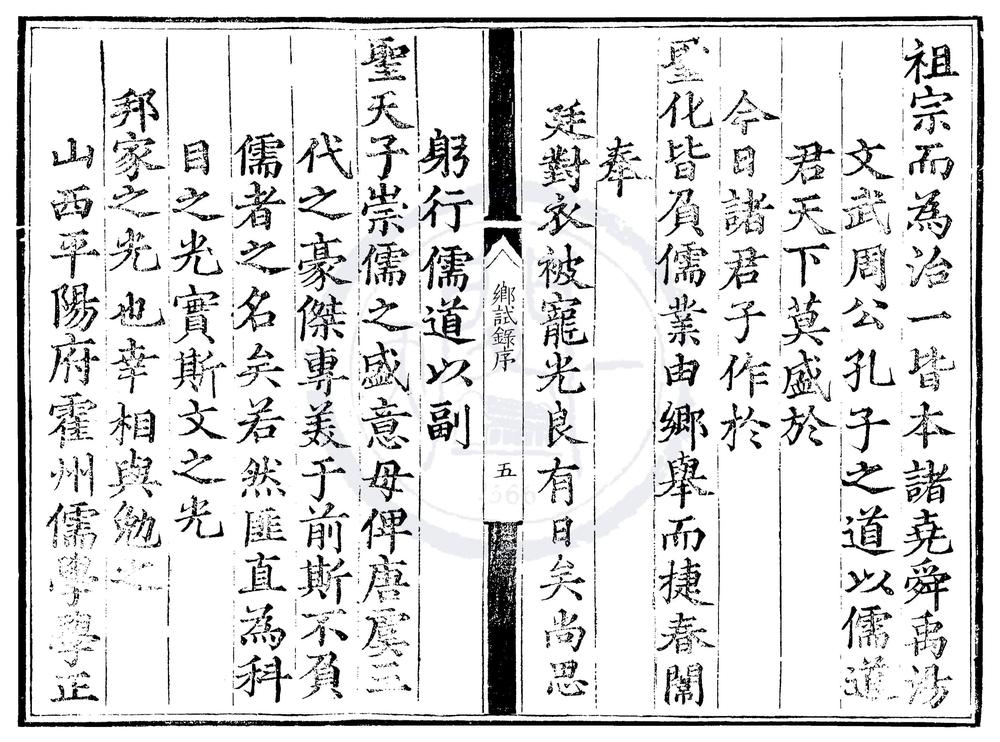 祖宗而為治一皆本諸堯舜禹湯
文武周公孔子之道以儒道
君天下莫盛於
今日諸君子作於
聖化皆負儒業由鄉舉而捷春闈
奉
廷對衣被寵光良有日矣尚思
鄉試錄序
五
躬行儒道以副
聖天子崇儒之盛意毋俾唐虞三
代之豪傑專美于前斯不負
儒者之名矣若然匪直為科
目之光實斯文之光
邦家之光也幸相與勉之
山西平陽府霍州儒學學正